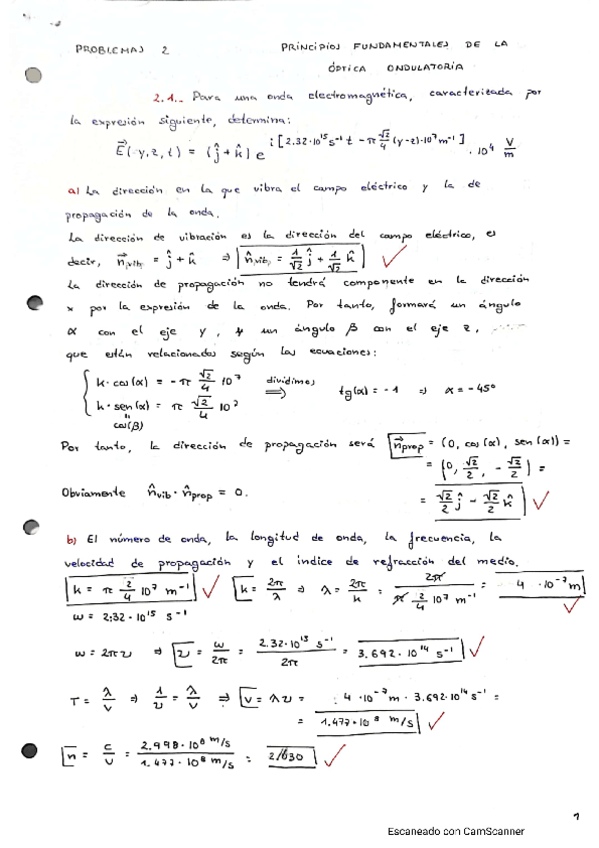 PROBLEMAS 2
PRINCIPIOS FUNDAMENTALES DE LA
ÓPTICA ONDULATORIA
2.1.. Para una onda electromagnética, caracterizada por
la expresión siguiente, determina:
E⃗(y,z,t) = (ĵ + k̂) e^{i[2.32·10¹⁵ s⁻¹ t − π √2/4 (y−z)·10⁷ m⁻¹]} · 10⁴ V/m
a) La dirección en la que vibra el campo eléctrico y la de
propagación de la onda.
La dirección de vibración es la dirección del campo eléctrico, es
decir, n⃗vib, = ĵ + k̂ ⇒ n̂vib, = 1/√2 ĵ + 1/√2 k̂ ✓
La dirección de propagación no tendrá componente en la dirección
x por la expresión de la onda. Por tanto, formará un ángulo
α con el eje y, y un ángulo β con el eje z,
que están relacionados según las ecuaciones:
k·cos(α) = −π √2/4 10⁷
dividimos ⇒ tg(α) = −1 ⇒ α = −45°
k·sen(α) = π √2/4 10⁷
"
cos(β)
Por tanto, la dirección de propagación será n⃗prop = (0, cos(α), sen(α)) =
= (0, √2/2, −√2/2) =
Obviamente n̂vib · n̂prop = 0.
= √2/2 ĵ − √2/2 k̂ ✓
b) El número de onda, la longitud de onda, la frecuencia, la
velocidad de propagación y el índice de refracción del medio.
k = π 2/4 10⁷ m⁻¹ ✓ k = 2π/λ ⇒ λ = 2π/k = 2π / (π 2/4 10⁷ m⁻¹) = 4 ·10⁻⁷ m ✓
ω = 2.32·10¹⁵ s⁻¹
ω = 2πν ⇒ ν = ω/2π = 2.32·10¹⁵ s⁻¹ / 2π = 3.692·10¹⁴ s⁻¹ ✓
T = λ/v ⇒ 1/ν = λ/v ⇒ v = λν = 4·10⁻⁷ m · 3.692·10¹⁴ s⁻¹ =
= 1.477·10⁸ m/s ✓
n = c/v = 2.998·10⁸ m/s / 1.477·10⁸ m/s = 2/030 ✓
1
Escaneado con CamScanner